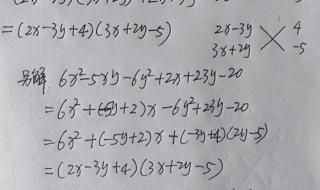 =(2x-3y+4)(3x+2y-5)
2x-3y 4
3x+2y -5
另解 6x²-5xy-6y²+2x+23y-20
=6x²+(-5y+2)x-6y²+23y-20
=6x²+(-5y+2)x+(-3y+4)(2y-5)
=(2x-3y+4)(3x+2y-5)